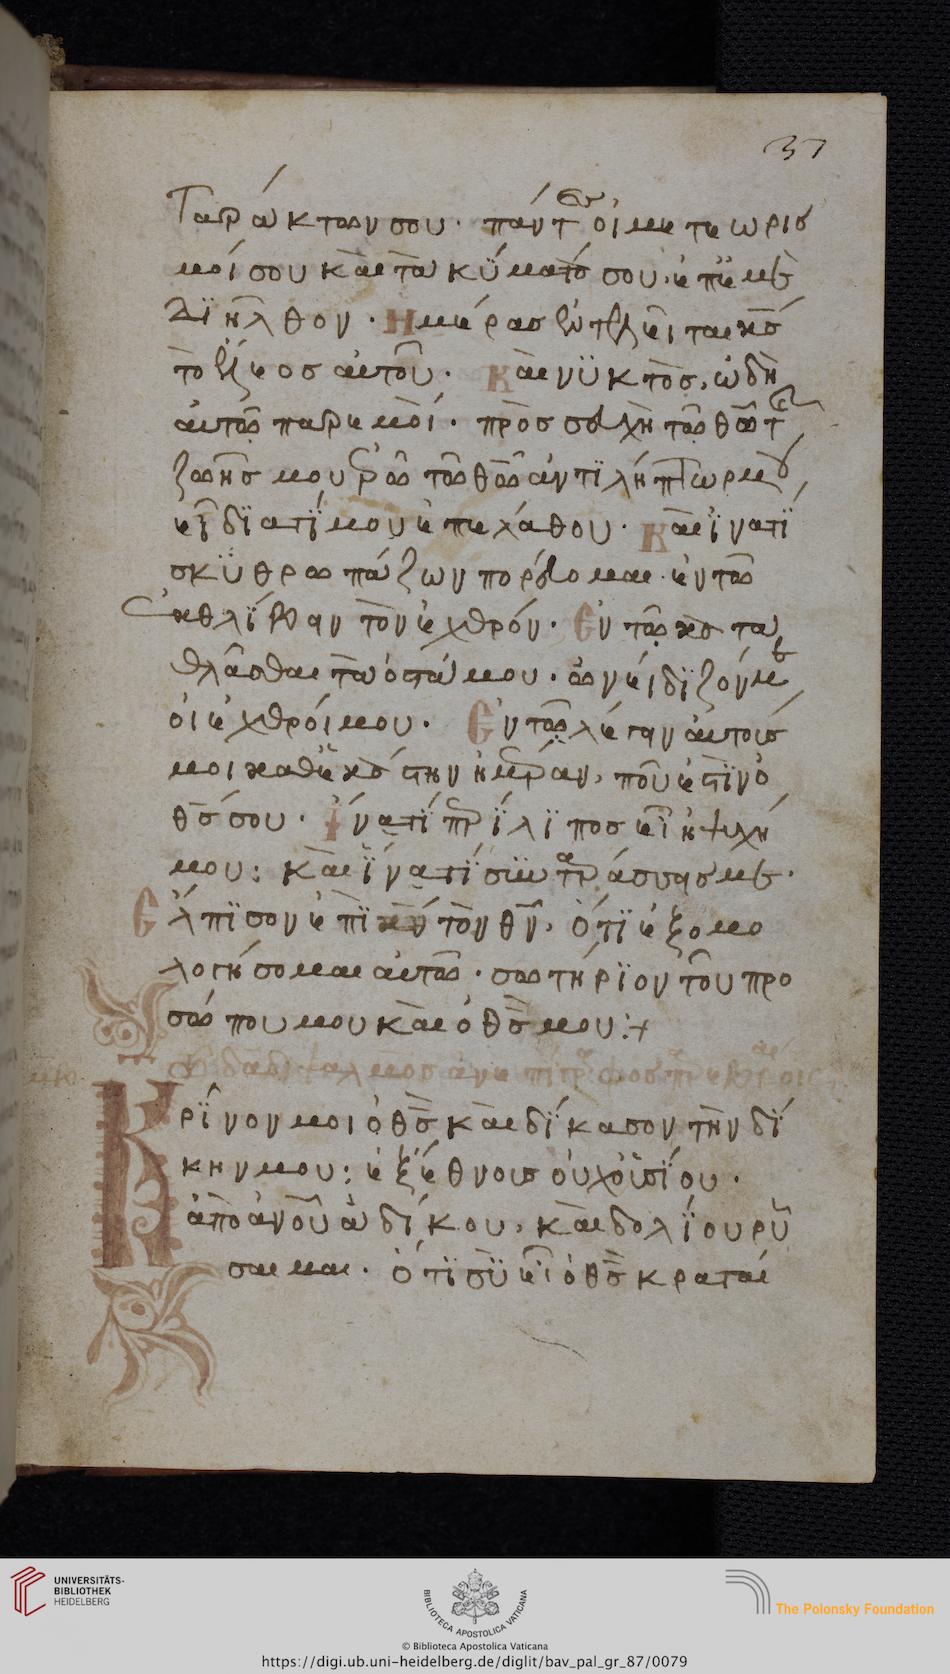 37
ταρράκτων σου· πάντες οἱ μετεωρισ
μοί σου καὶ τὰ κύματά σου, ἐπ' ἐμὲ
διῆλθον· Ἡμέρας ἐντελεῖται κς
τὸ ἔλεος αὐτοῦ· Καὶ νυκτὸς, ὠδὴ
αὐτῶ παρ' ἐμοί· προσευχὴ τῶ θῶ τῆς
ζωῆς μου ἐρῶ τῶ θῶ ἀντιλήπτωρ μου
εἶ διατί μου ἐπελάθου· Καὶ ἵνατί
σκυθρωπάζων πορεύομαι· ἐν τῶ
ἐκθλίβειν τὸν ἐχθρόν· Ἐν τῶ κατα
θλᾶσθαι τὰ ὀστά μου· ὠνείδιζόν με
οἱ ἐχθροί μου· Ἐν τῶ λέγειν αὐτούς
μοι καθ' ἑκάστην ἡμέραν, ποῦ ἐστὶν ὁ
θς σου· Ἱνατί περίλυπος εἶ ἡ ψυχή
μου: καὶ ἵνατί συνταράσσεις με·
Ἔλπισον ἐπὶ τὸν θν, ὅτι ἐξομο
λογήσομαι αὐτῶ· σωτήριον τοῦ προ
σώπου μου καὶ ὁ θς μου:+
Κρῖνον μοι ὁ θς καὶ δίκασον τὴν δί
κην μου: ἐξ ἔθνους οὐχ ὁσίου·
ἀπὸ ἀνοῦ ἀδίκου, καὶ δολίου ρῦ
σαι με· ὅτι σὺ εἶ ὁ θς κραταί
UNIVERSITÄTS-
BIBLIOTHEK
HEIDELBERG
BIBLIOTECA APOSTOLICA VATICANA
The Polonsky Foundation
© Biblioteca Apostolica Vaticana
https://digi.ub.uni-heidelberg.de/diglit/bav_pal_gr_87/0079